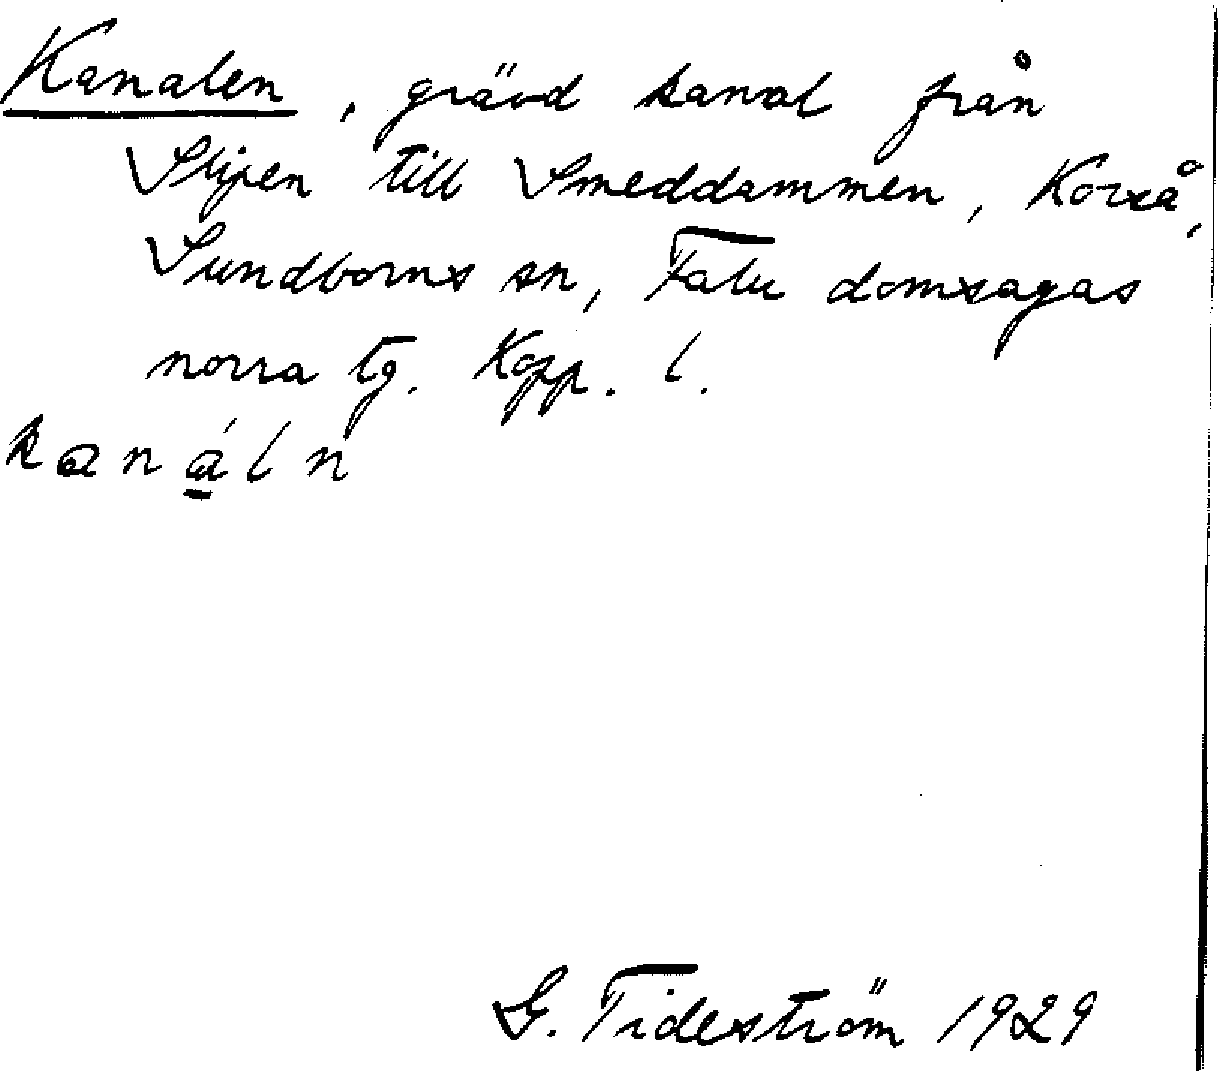 Kanalen, grävd kanal från
Slipen till Smeddammen, Korså,
Sundborns sn, Falu domsagas
norra tg. Kopp. l.
kanáln
G. Tideström 1929